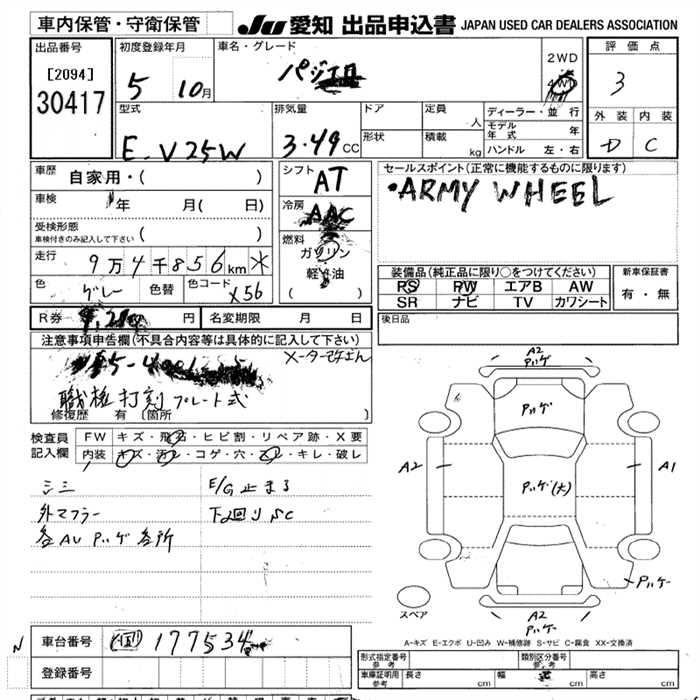 車内保管・守衛保管
JU 愛知 出品申込書 JAPAN USED CAR DEALERS ASSOCIATION
出品番号
[2094]
30417
初度登録年月
5 10月
車名・グレード
パジェロ
2WD
4WD
評価点
3
外装 内装
D C
型式
E-V25W
排気量
3.49CC
ドア
形状
定員 人
積載 kg
ディーラー・並行
モデル年式 年
ハンドル 左・右
車歴
自家用・( )
車検 年 月( 日)
受検形態
車検付きのみ記入して下さい ( )
走行
9万4千856km*
色
グレー
色替
色コード
X56
シフト
AT
冷房
AAC
燃料
ガソリン
軽油
( )
セールスポイント(正常に機能するものに限ります)
・ARMY WHEEL
装備品(純正品に限り○をつけてください)
PS PW エアB AW
SR ナビ TV カワシート
新車保証書
有・無
後日品
R券 円
名変期限 月 日
注意事項申告欄(不具合内容等は具体的に記入して下さい)
メーター改ざん
職権打刻プレート式
修復歴 有 〔箇所 〕
検査員記入欄
FW キズ・飛石・ヒビ割・リペア跡・X要
内装 キズ・汚レ・コゲ・穴・スレ・キレ・破レ
シミ
E/G止まる
外マフラー
下廻りSC
各AU Pハゲ各所
A2
Pハゲ
Pハゲ
A2
Pハゲ(大)
A1
Pハゲ
スペア
A2
Pハゲ
A-キズ E-エクボ U-凹み W-補修跡 S-サビ C-腐食 XX-交換済
N
車台番号
177534
登録番号
形式指定番号
参考
類別区分番号
参考
車庫証明用
参考
長さ cm
幅 cm
高さ cm